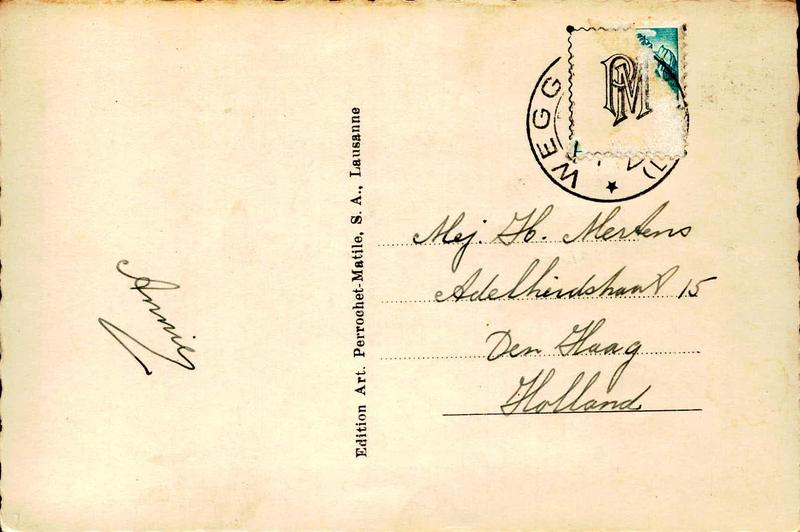 Annie
Edition Art. Perrochet-Matile, S. A., Lausanne
PM
WEGG
Mej. H. Mertens
15
Den Haag
Holland